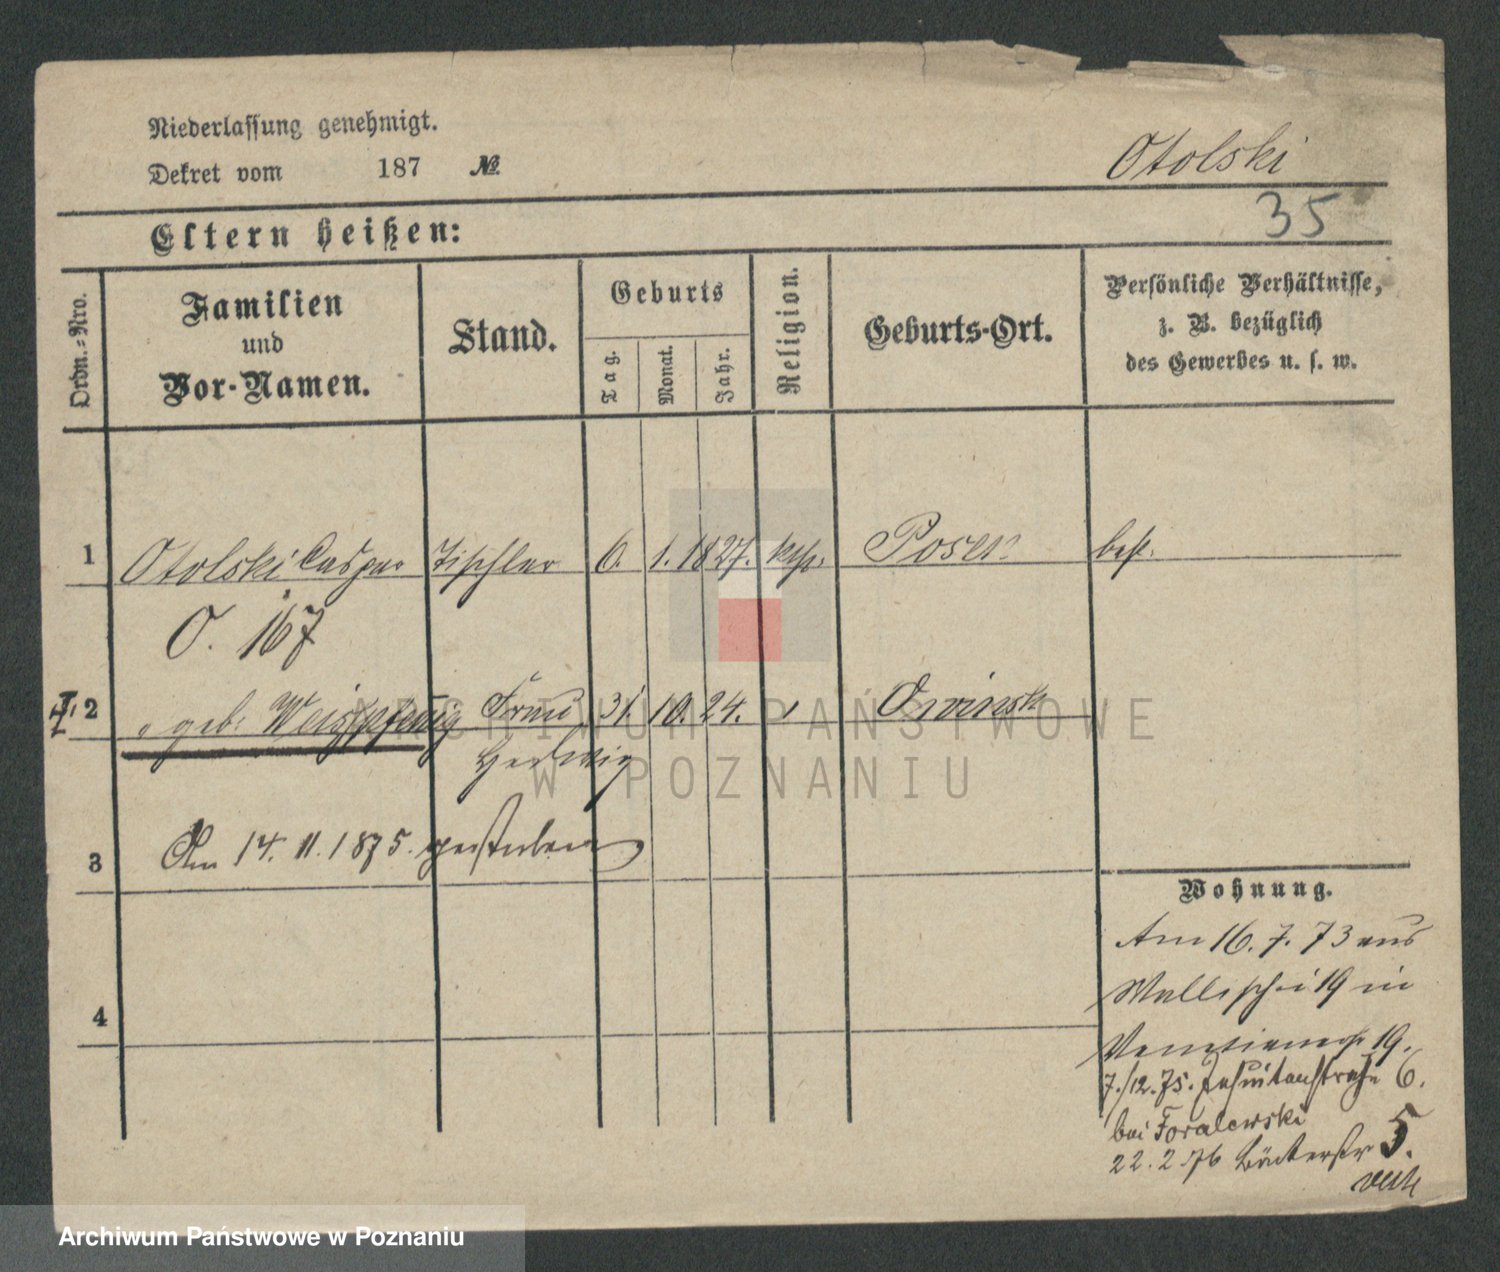 Niederlassung genehmigt.
Dekret vom 187 №
Otolski
35
Eltern heißen:
Ordn.-Nro.
Familien
und
Vor-Namen.
Stand.
Geburts
Tag.
Monat.
Jahr.
Religion.
Geburts-Ort.
Persönliche Verhältnisse,
z. B. bezüglich
des Gewerbes u. s. w.
1 Otolski Caspar Tischler 6. 1. 1827. kth. Posen best.
O. 167
2 " geb. Weisspfenig Frau 31. 10. 24. "
Hedwig
3 Am 14. 11. 1875. gestorben
4
Wohnung.
Am 16. 7. 73 aus
Wallischei 19 in
Venetianerstr 19.
7./12. 75. Jesuitenstraße 6.
bei Foralewski
22. 2. 76 Bäckerstr 5.
ARCHIWUM PAŃSTWOWE
W POZNANIU
Archiwum Państwowe w Poznaniu